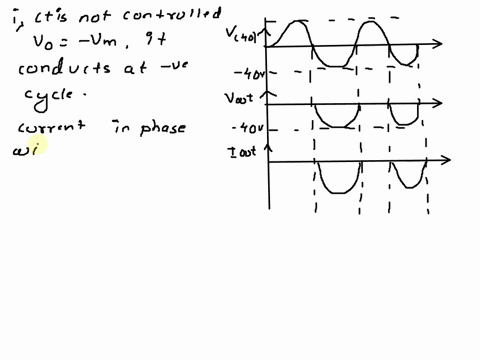 i, ctis not controlled
Vo = -Vm, 9t
conducts at -ve
cycle.
current in phase
wi
V(40)
-40v
Vout
-40v
Iout